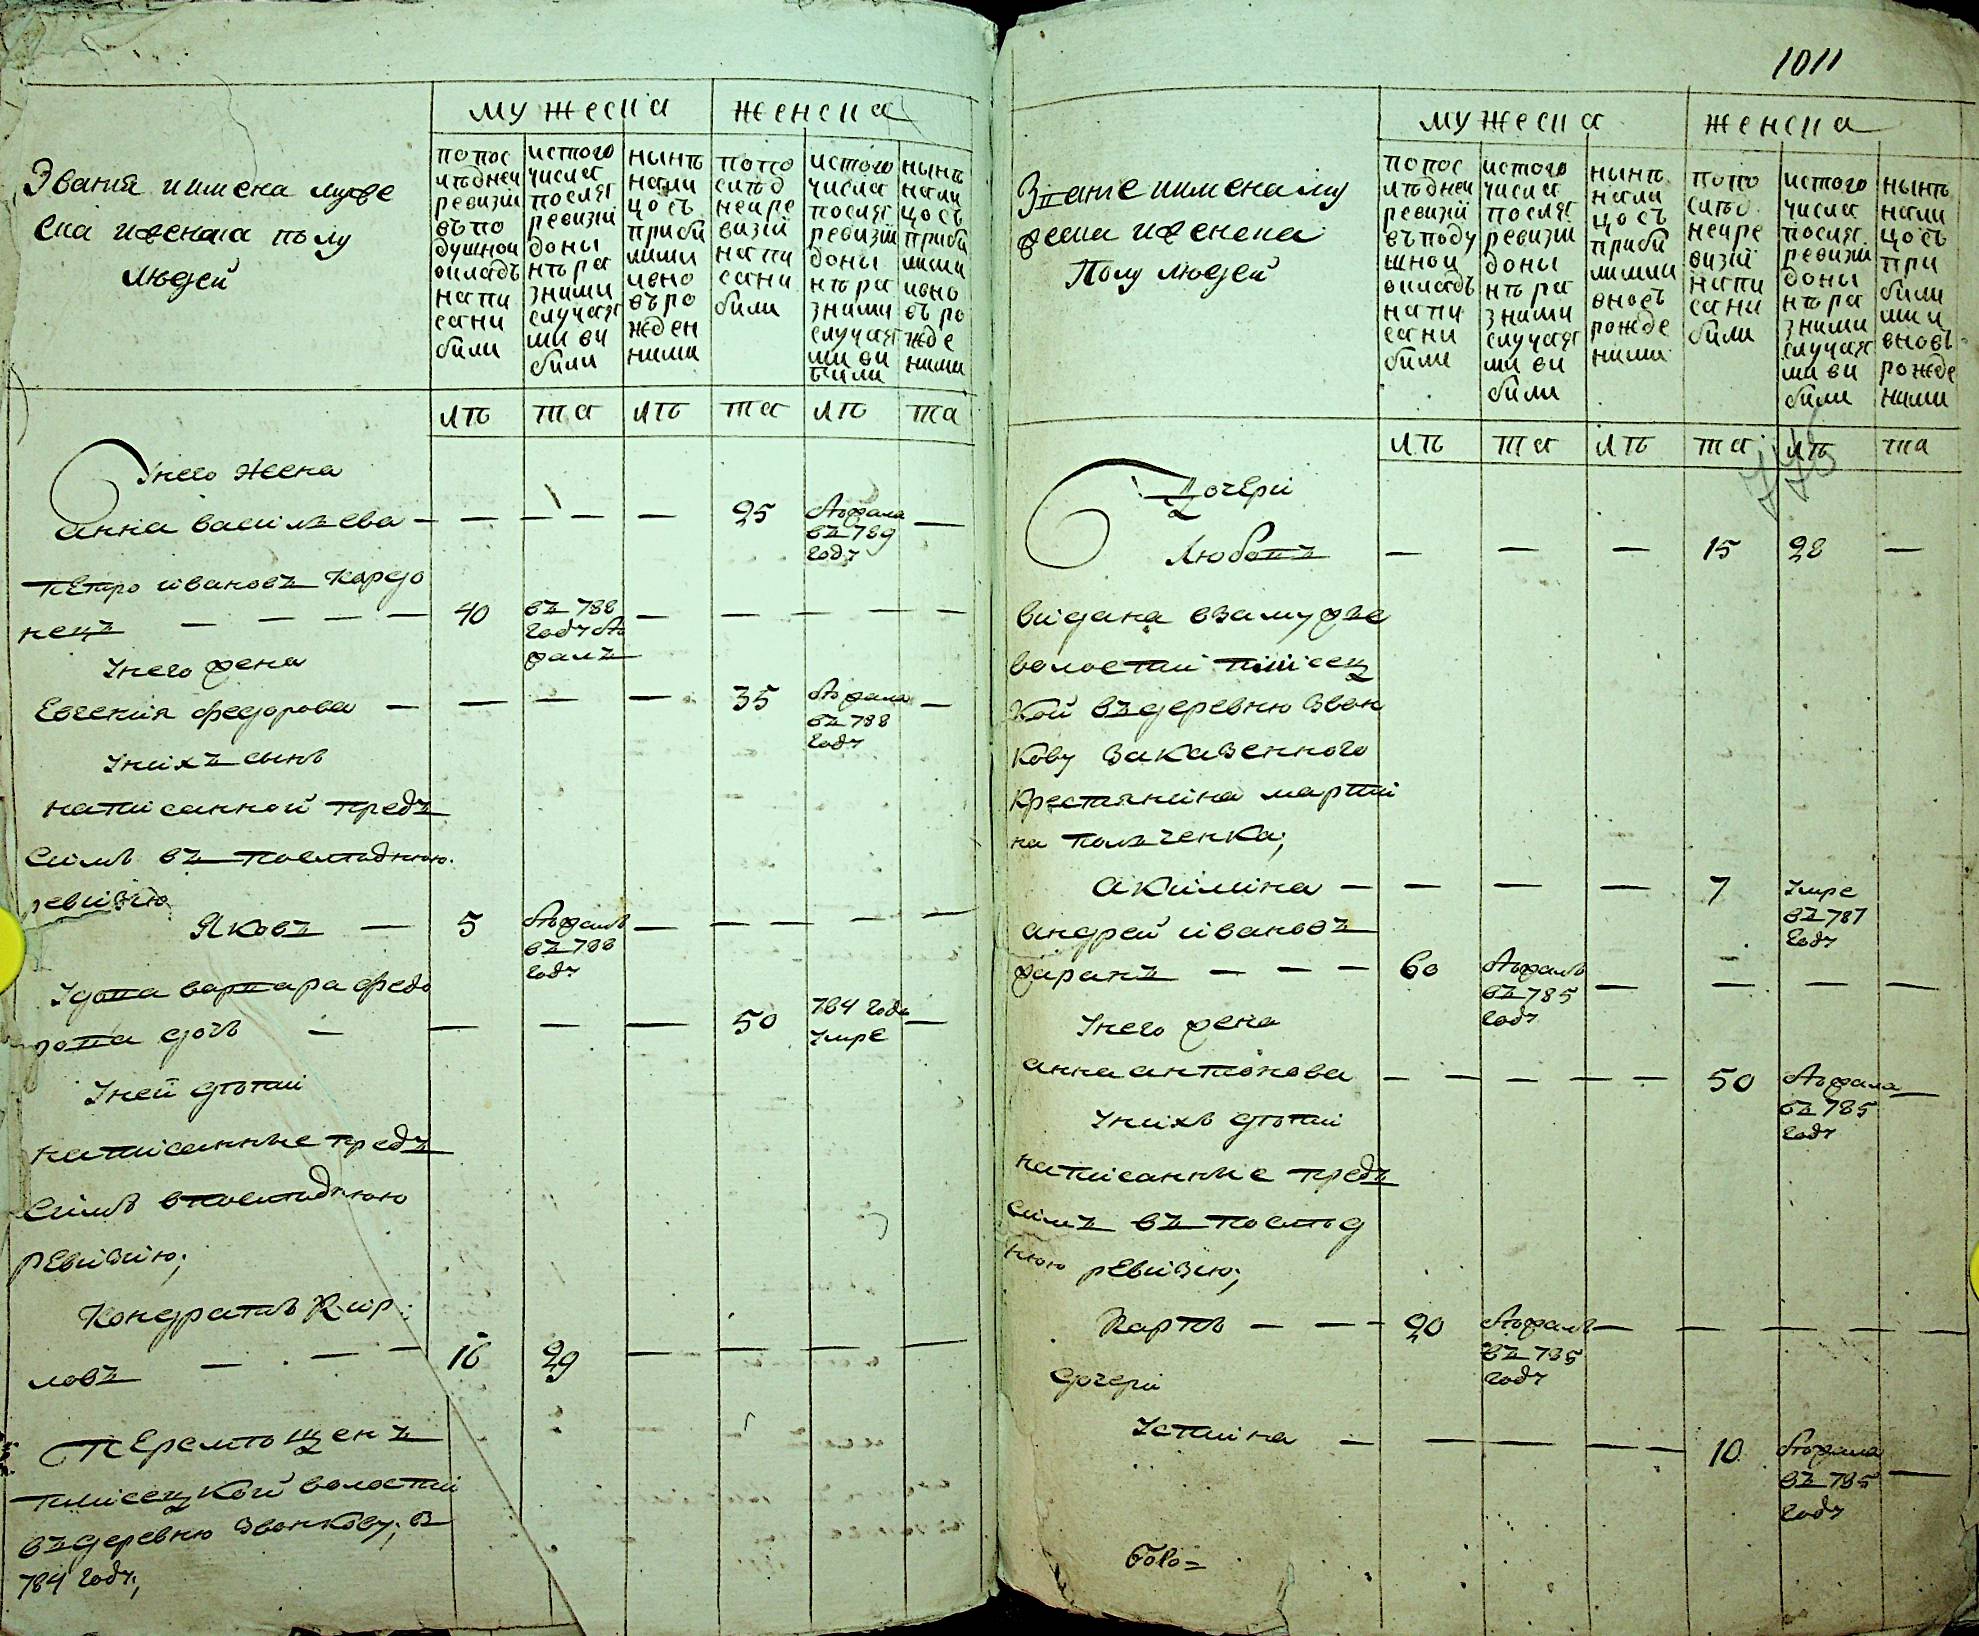 мужеска
женска
Звания и имена муже
ска и женска полу
людей
попос
лѣдней
ревизии
въпо
душной
окладъ
напи
сани
были
истого
числа
послѣ
ревизии
доны
нѣ ра
зними
случая
ми ви
были
нынѣ
нали
цо съ
приби
лими
ивно
въ ро
жден
ними
попо
слѣд
ней ре
визии
напи
сани
были
истого
числа
послѣ
ревизии
доны
нѣ ра
зними
случая
ми ви
были
нынѣ
нали
цо съ
приби
лими
ивно
въ ро
жде
ними
лѣ та лѣ та лѣ та
Унего жена
анна василъева — — — — 25 Аждала —
въ 789
году
Петро ивановъ кардо
нецъ — — — — 40 въ 788 — — — — —
году
Унего жена
Евгения федорова — — — — 35
въ 788
году
Унихъ сынъ
написанной предъ
симъ въ последнюю
ревизию
Яковъ — 5 — — — —
въ 788
году
Удова варвара федо
рова дочь — — — — 50 784 года —
умре
Уней дѣти
написанные предъ
симъ впоследнюю
ревизию;
Кондратъ Кири
ловъ — — — 16 29 — — — —
Перемѣщенъ
тписецкой волости
въ деревню звонкову; в
784 году;
1011
мужеска
женска
Звание и имена му
жеска и женска
Полу людей
попос
лѣдней
ревизии
въ поду
шной
окладъ
напи
сани
были
истого
числа
послѣ
ревизии
доны
нѣ ра
зними
случая
ми ви
были
нынѣ
нали
цо съ
приби
лими
вновъ
рожде
ними
попо
слѣд
ней ре
визии
напи
сани
были
истого
числа
послѣ
ревизии
доны
нѣ ра
зними
случая
ми ви
были
нынѣ
нали
цо съ
при
били
ми и
вновъ
рожде
ними
лѣ та лѣ та лѣ та
Дочери
Любовъ — — — 15 28 —
видана взамужже
волости тписец
кой въ деревню звон
кову заказенного
крестянина марти
на полъченка;
акилина — — — — 7 умре
въ 787
году
андрей ивановъ
жаранъ — — — 60 — — — —
въ 785
году
Унего жена
анна антонова — — — — — 50 —
въ 785
году
Унихъ дѣти
написанные предъ
симъ въ последъ
нюю ревизию;
Карпъ — — — 20 — — — — —
въ 785
году
дочери
Устина — — — — — 10 —
въ 785
году